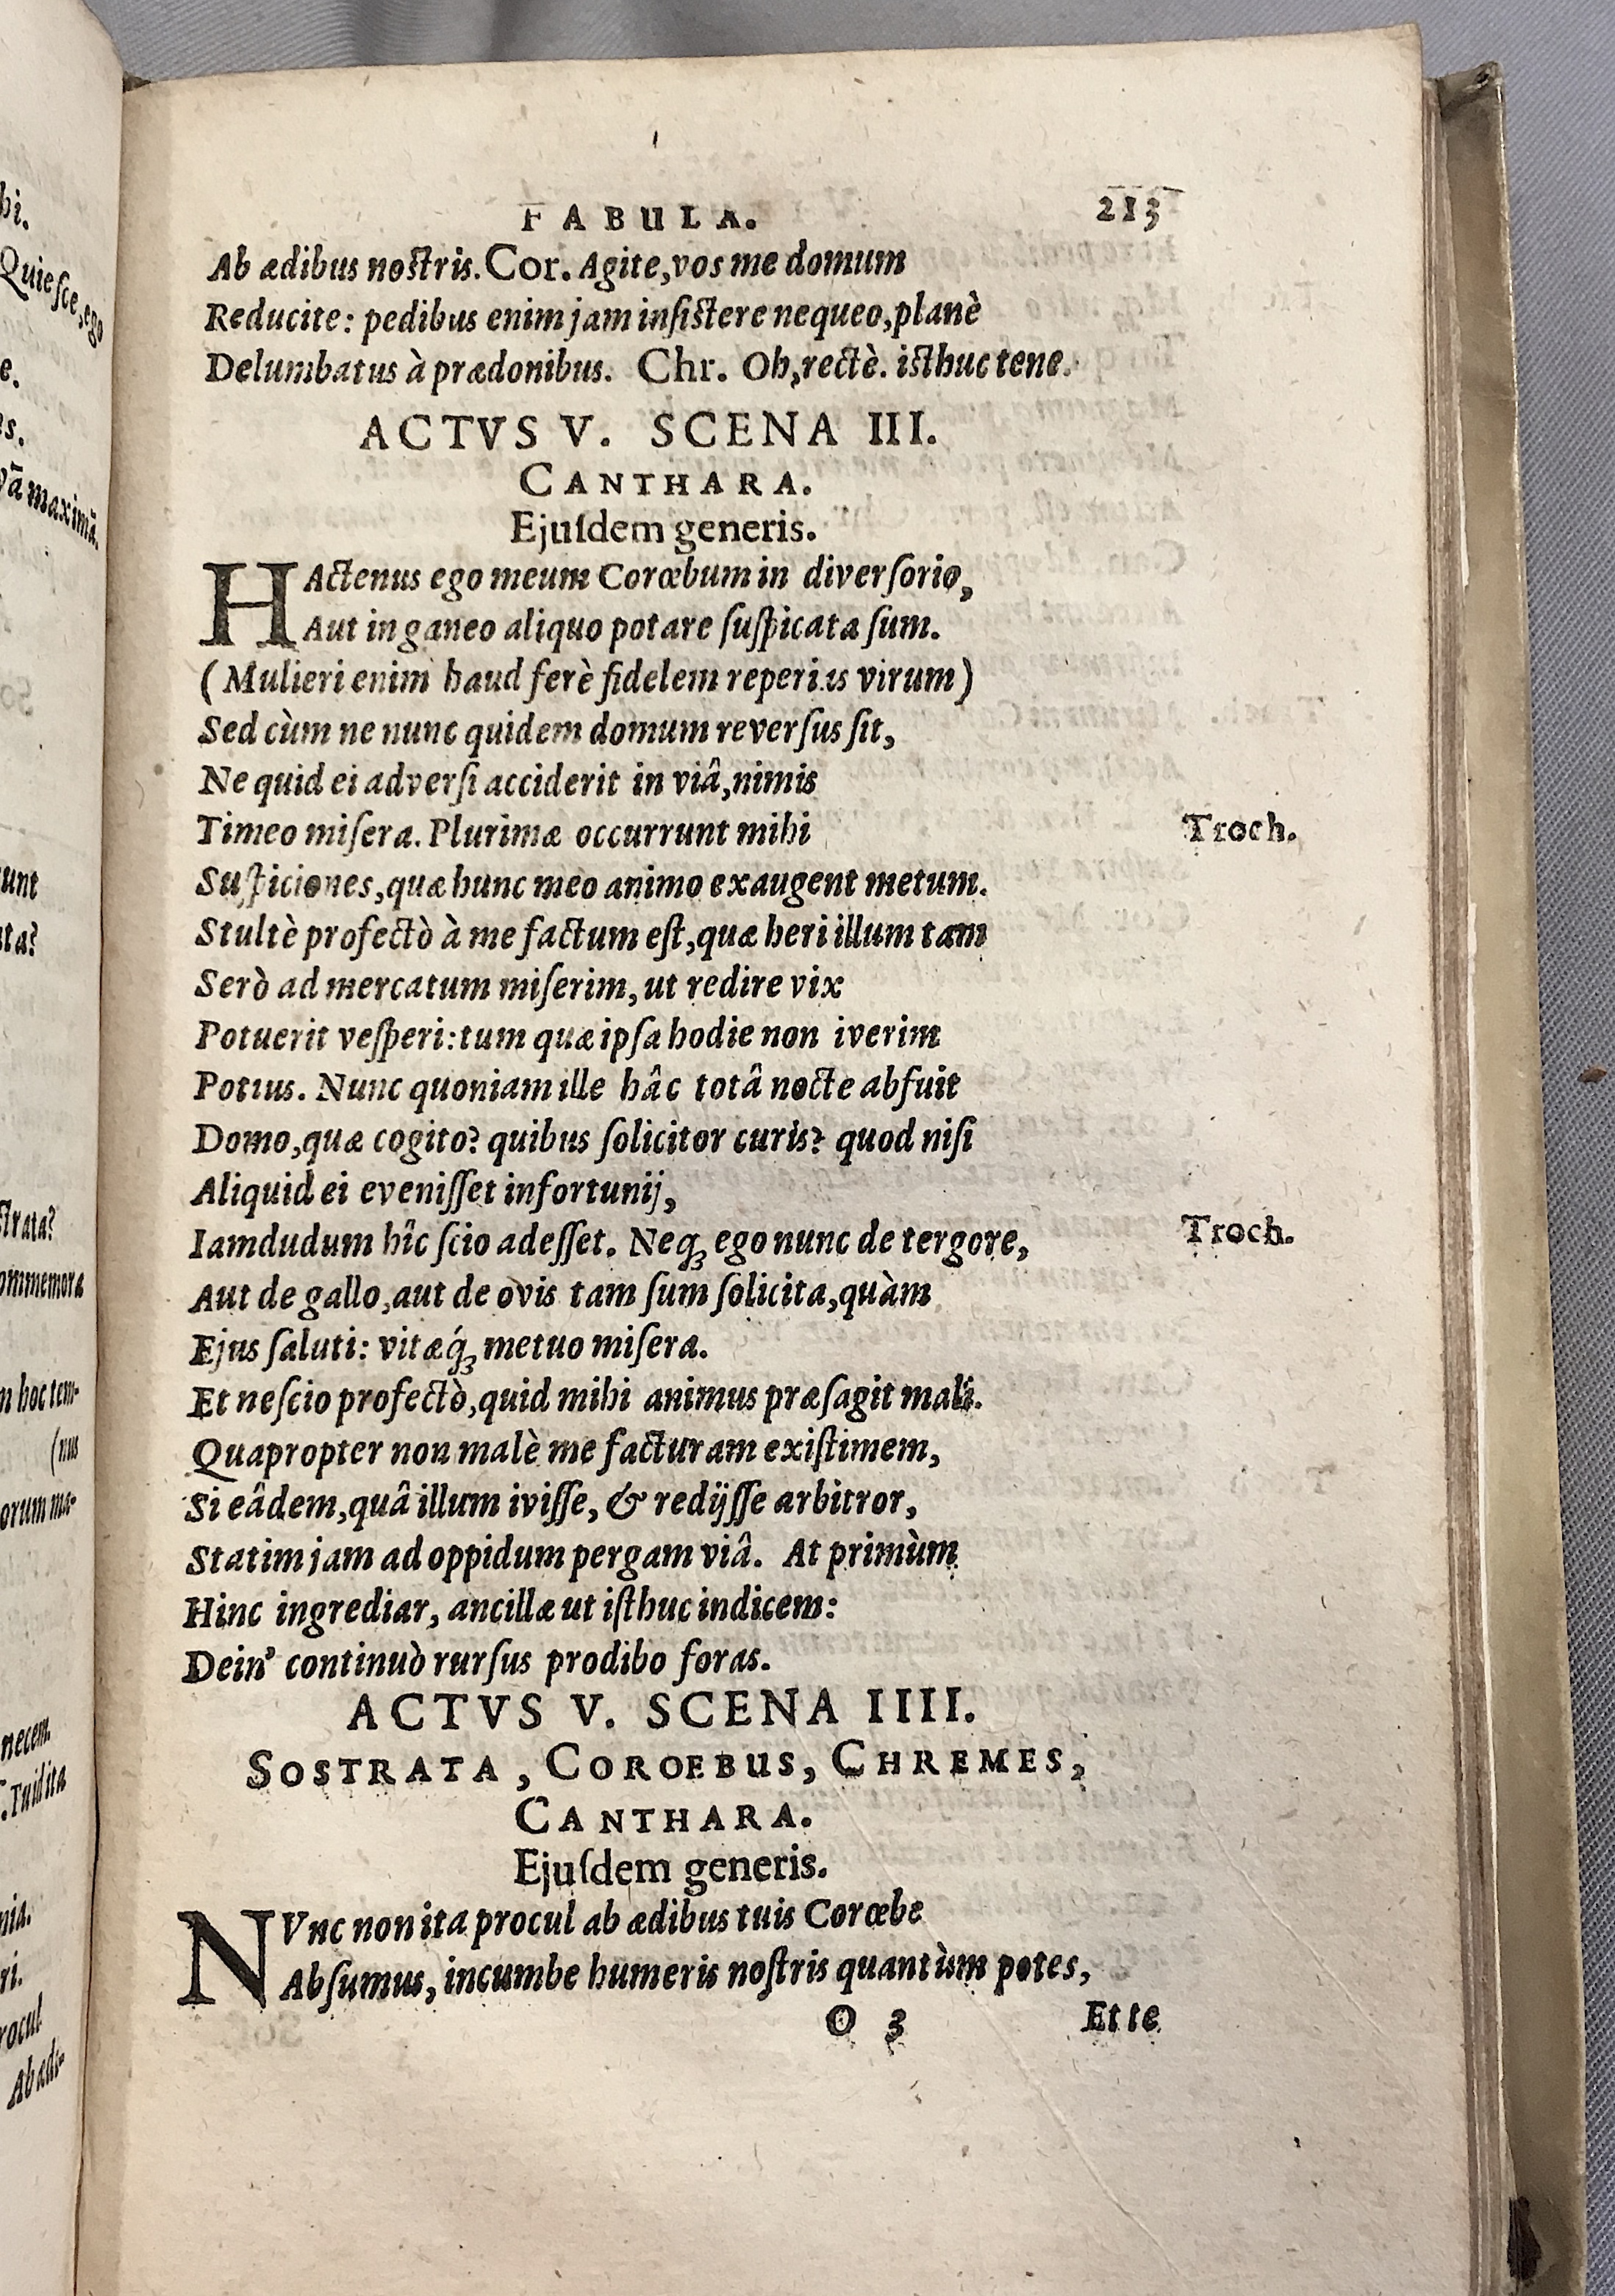 FABULA. 213
Ab ædibus nostris. Cor. Agite, vos me domum
Reducite: pedibus enim jam insistere nequeo, planè
Delumbatus à prædonibus. Chr. Oh, rectè. isthuc tene.
ACTVS V. SCENA III.
CANTHARA.
Ejuſdem generis.
HActenus ego meum Corœbum in diverſorio,
Aut in ganeo aliquo potare ſuſpicata ſum.
(Mulieri enim haud ferè fidelem reperias virum)
Sed cùm ne nunc quidem domum reverſus ſit,
Ne quid ei adverſi acciderit in viâ, nimis
Timeo miſera. Plurimæ occurrunt mihi Troch.
Suſpiciones, quæ hunc meo animo exaugent metum.
Stultè profectò à me factum eſt, quæ heri illum tam
Serò ad mercatum miſerim, ut redire vix
Potuerit veſperi: tum quæ ipſa hodie non iverim
Potius. Nunc quoniam ille hâc totâ nocte abfuit
Domo, quæ cogito? quibus ſolicitor curis? quod niſi
Aliquid ei eveniſſet infortunij,
Iamdudum hîc ſcio adeſſet. Neq; ego nunc de tergore, Troch.
Aut de gallo, aut de ovis tam ſum ſolicita, quàm
Ejus ſaluti: vitæq́; metuo miſera.
Et neſcio profectò, quid mihi animus præſagit mali.
Quapropter non malè me facturam exiſtimem,
Si eâdem, quâ illum iviſſe, & redijſſe arbitror,
Statim jam ad oppidum pergam viâ. At primùm
Hinc ingrediar, ancillæ ut iſthuc indicem:
Dein' continuò rurſus prodibo foras.
ACTVS V. SCENA IIII.
SOSTRATA, COROEBUS, CHREMES,
CANTHARA.
Ejuſdem generis.
NVnc non ita procul ab ædibus tuis Corœbe
Abſumus, incumbe humeris noſtris quantùm potes,
O 3 Et te